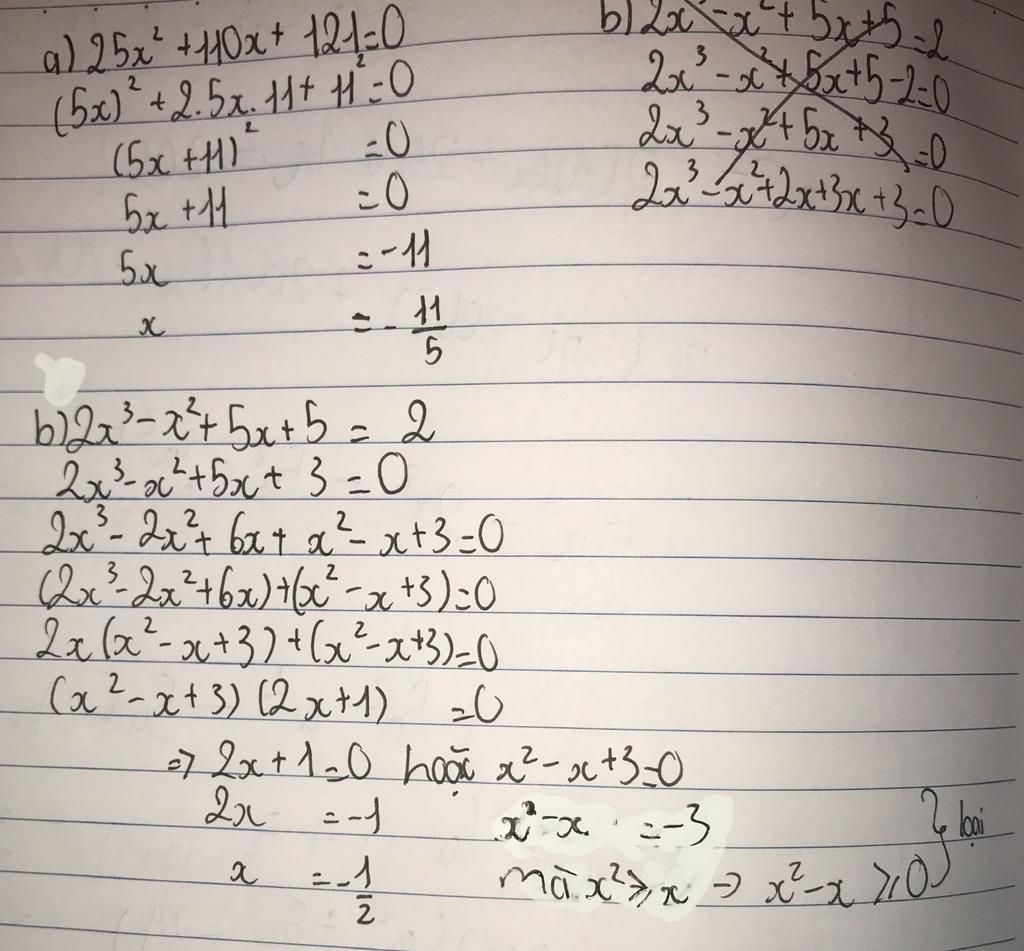 a) 25x² + 110x + 121 = 0
(5x)² + 2.5x.11 + 11² = 0
(5x + 11)² = 0
5x + 11 = 0
5x = -11
x = -11/5
b) 2x³ - x² + 5x + 5 = 2
2x³ - x² + 5x + 5 - 2 = 0
2x³ - x² + 5x + 3 = 0
2x³ - x² + 2x + 3x + 3 = 0
b) 2x³ - x² + 5x + 5 = 2
2x³ - x² + 5x + 3 = 0
2x³ - 2x² + 6x + x² - x + 3 = 0
(2x³ - 2x² + 6x) + (x² - x + 3) = 0
2x(x² - x + 3) + (x² - x + 3) = 0
(x² - x + 3)(2x + 1) = 0
=> 2x + 1 = 0 hoặc x² - x + 3 = 0
2x = -1 x² - x = -3
x = -1/2 mà x² ⩾ x → x² - x ⩾ 0 } loại